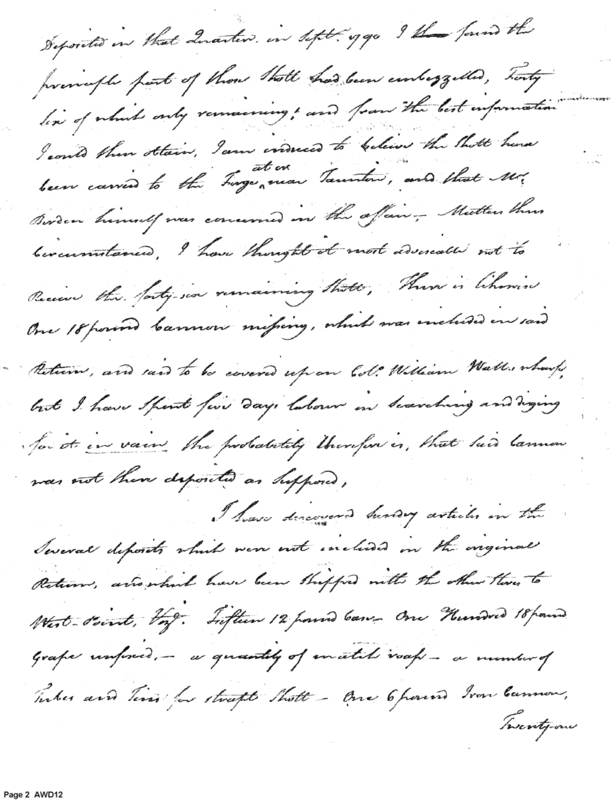 Deposited in that Quarter. in Septr. 1790 I found the
principle part of those Shott had been embezzelled, Forty
six of which only remaining; and from the best information
I could then obtain, I am induced to believe the Shott have
been carried to the Forge at or near Taunton, and that Mr.
Borden himself was concerned in the affair – Matters thus
Circumstanced, I have thought it most adviseable not to
Receive the forty-six remaining Shott, There is likewise
One 18 pound Cannon missing, which was included in said
Return, and said to be covered up on Colo. William Wall's wharf,
but I have spent five days labour in searching and diging
for it in vain. the probability therefore is, that said Cannon
was not there deposited as supposed,
I have discovered sundry articles in the
Several deposits which were not included in the original
Return, and which have been shipped with the other stores to
West-Point, Vizt. Fifteen 12 pound Cases – One Hundred 18 pound
Grape unfixed, – a quantity of match rope – a number of
Tubes and Tins for strapt Shott – One 6 pound Iron Cannon,
Twenty one
Page 2 AWD12